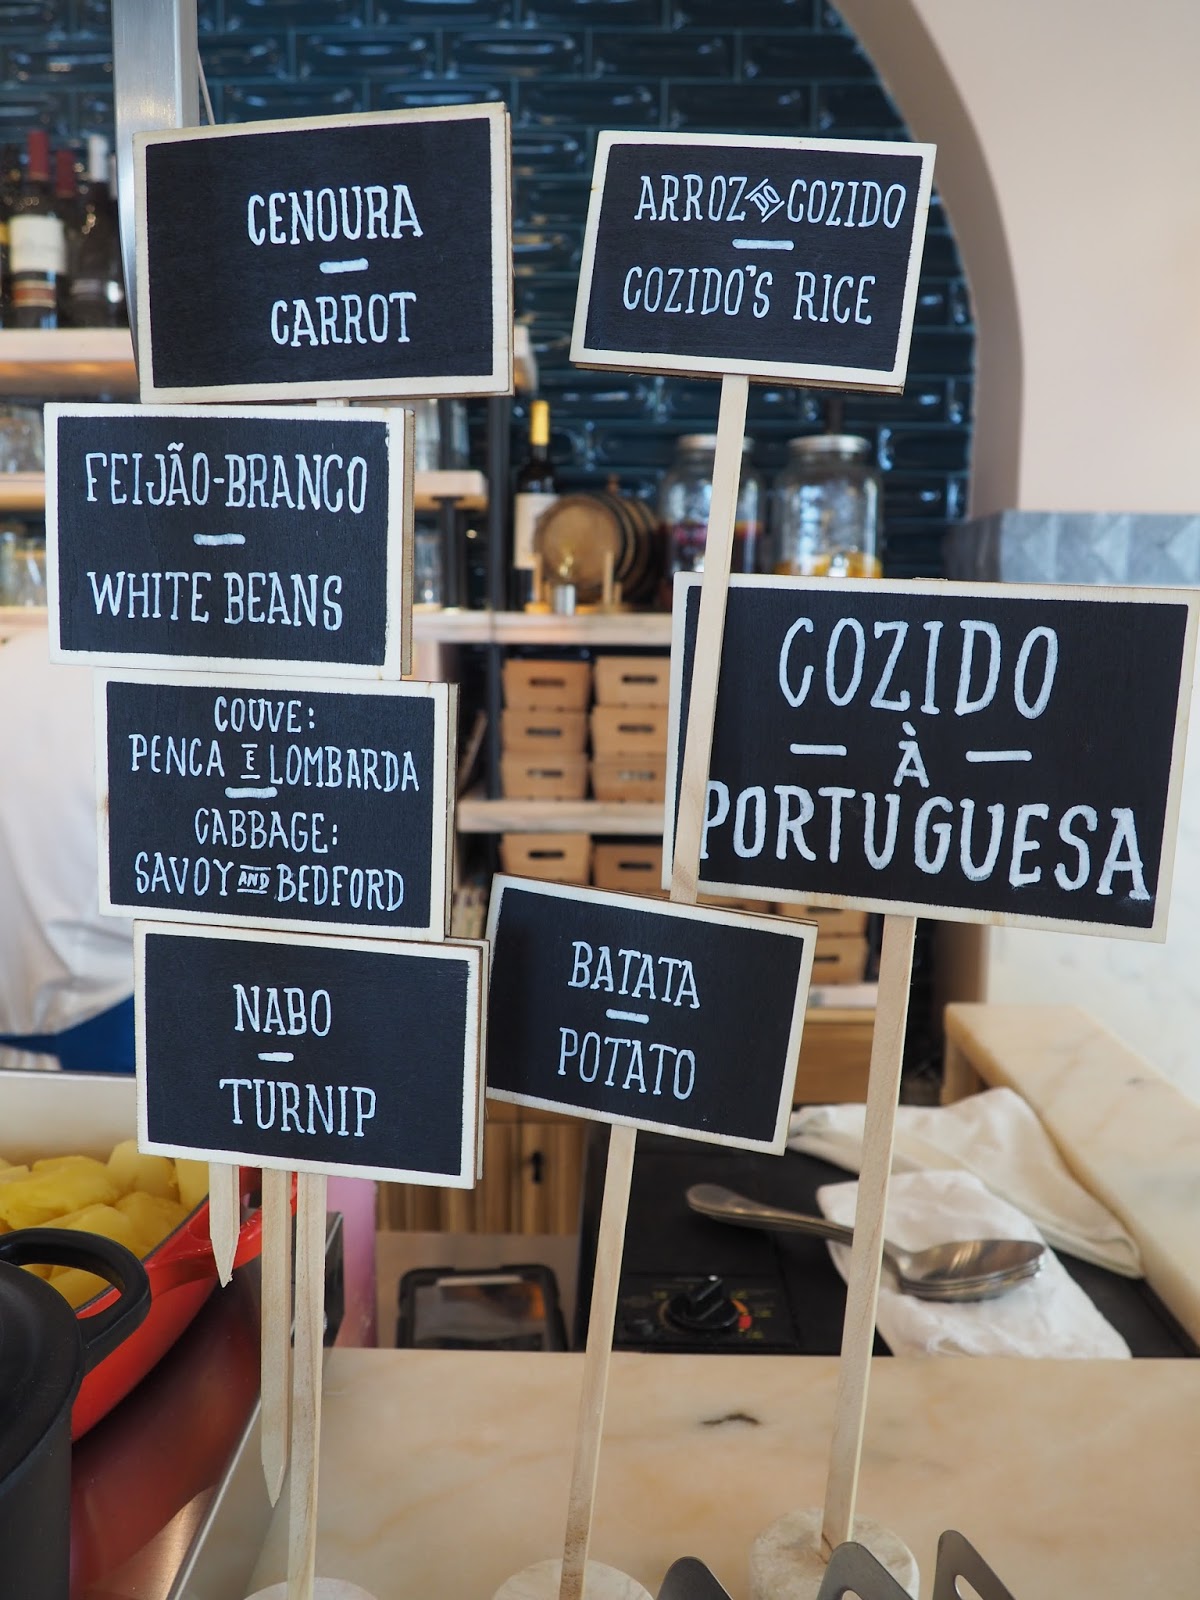 CENOURA
CARROT
ARROZ DO COZIDO
COZIDO'S RICE
FEIJÃO-BRANCO
WHITE BEANS
COUVE:
PENCA E LOMBARDA
CABBAGE:
SAVOY AND BEDFORD
COZIDO
À
PORTUGUESA
NABO
TURNIP
BATATA
POTATO